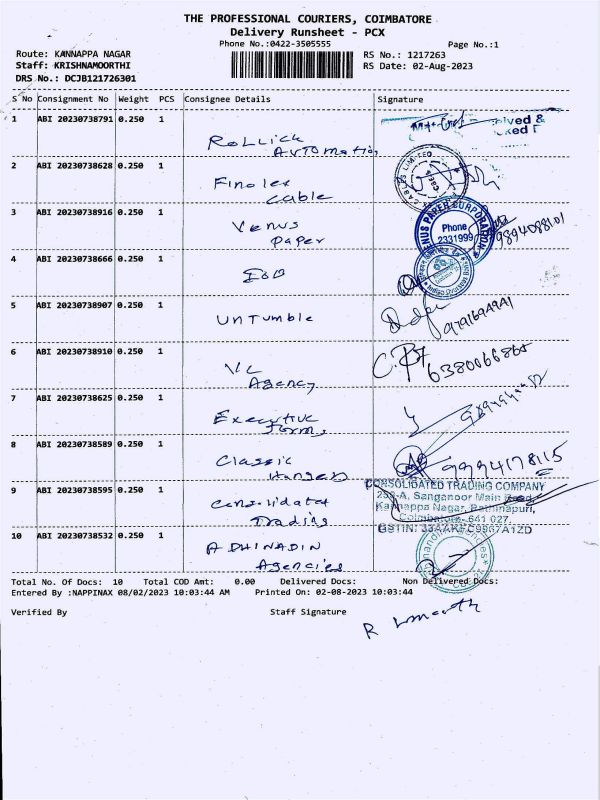 THE PROFESSIONAL COURIERS, COIMBATORE
Delivery Runsheet - PCX
Phone No.:0422-3505555
Page No.:1
Route: KANNAPPA NAGAR
RS No.: 1217263
Staff: KRISHNAMOORTHI
RS Date: 02-Aug-2023
DRS No.: DCJB121726301
S No Consignment No Weight PCS Consignee Details Signature
1 ABI 20230738791 0.250 1
Rollick
Automation
2 ABI 20230738628 0.250 1
Finolex
Cable
3 ABI 20230738916 0.250 1
Venus
Paper
VENUS PAPER CORPORATION
Phone
2331999
9894088101
4 ABI 20230738666 0.250 1
IOB
5 ABI 20230738907 0.250 1
Untumble
6 ABI 20230738910 0.250 1
VL
Agency
6380066865
7 ABI 20230738625 0.250 1
Executive
Forms
8 ABI 20230738589 0.250 1
Classic
Hangers
9994178115
9 ABI 20230738595 0.250 1
Trading
CONSOLIDATED TRADING COMPANY
259-A, Sanganoor Main Road,
Kannappa Nagar, Rathinapuri,
Coimbatore-641 027.
10 ABI 20230738532 0.250 1
Agencies
Total No. Of Docs: 10 Total COD Amt: 0.00 Delivered Docs: Non Delivered Docs:
Entered By :NAPPINAX 08/02/2023 10:03:44 AM Printed On: 02-08-2023 10:03:44
Verified By Staff Signature